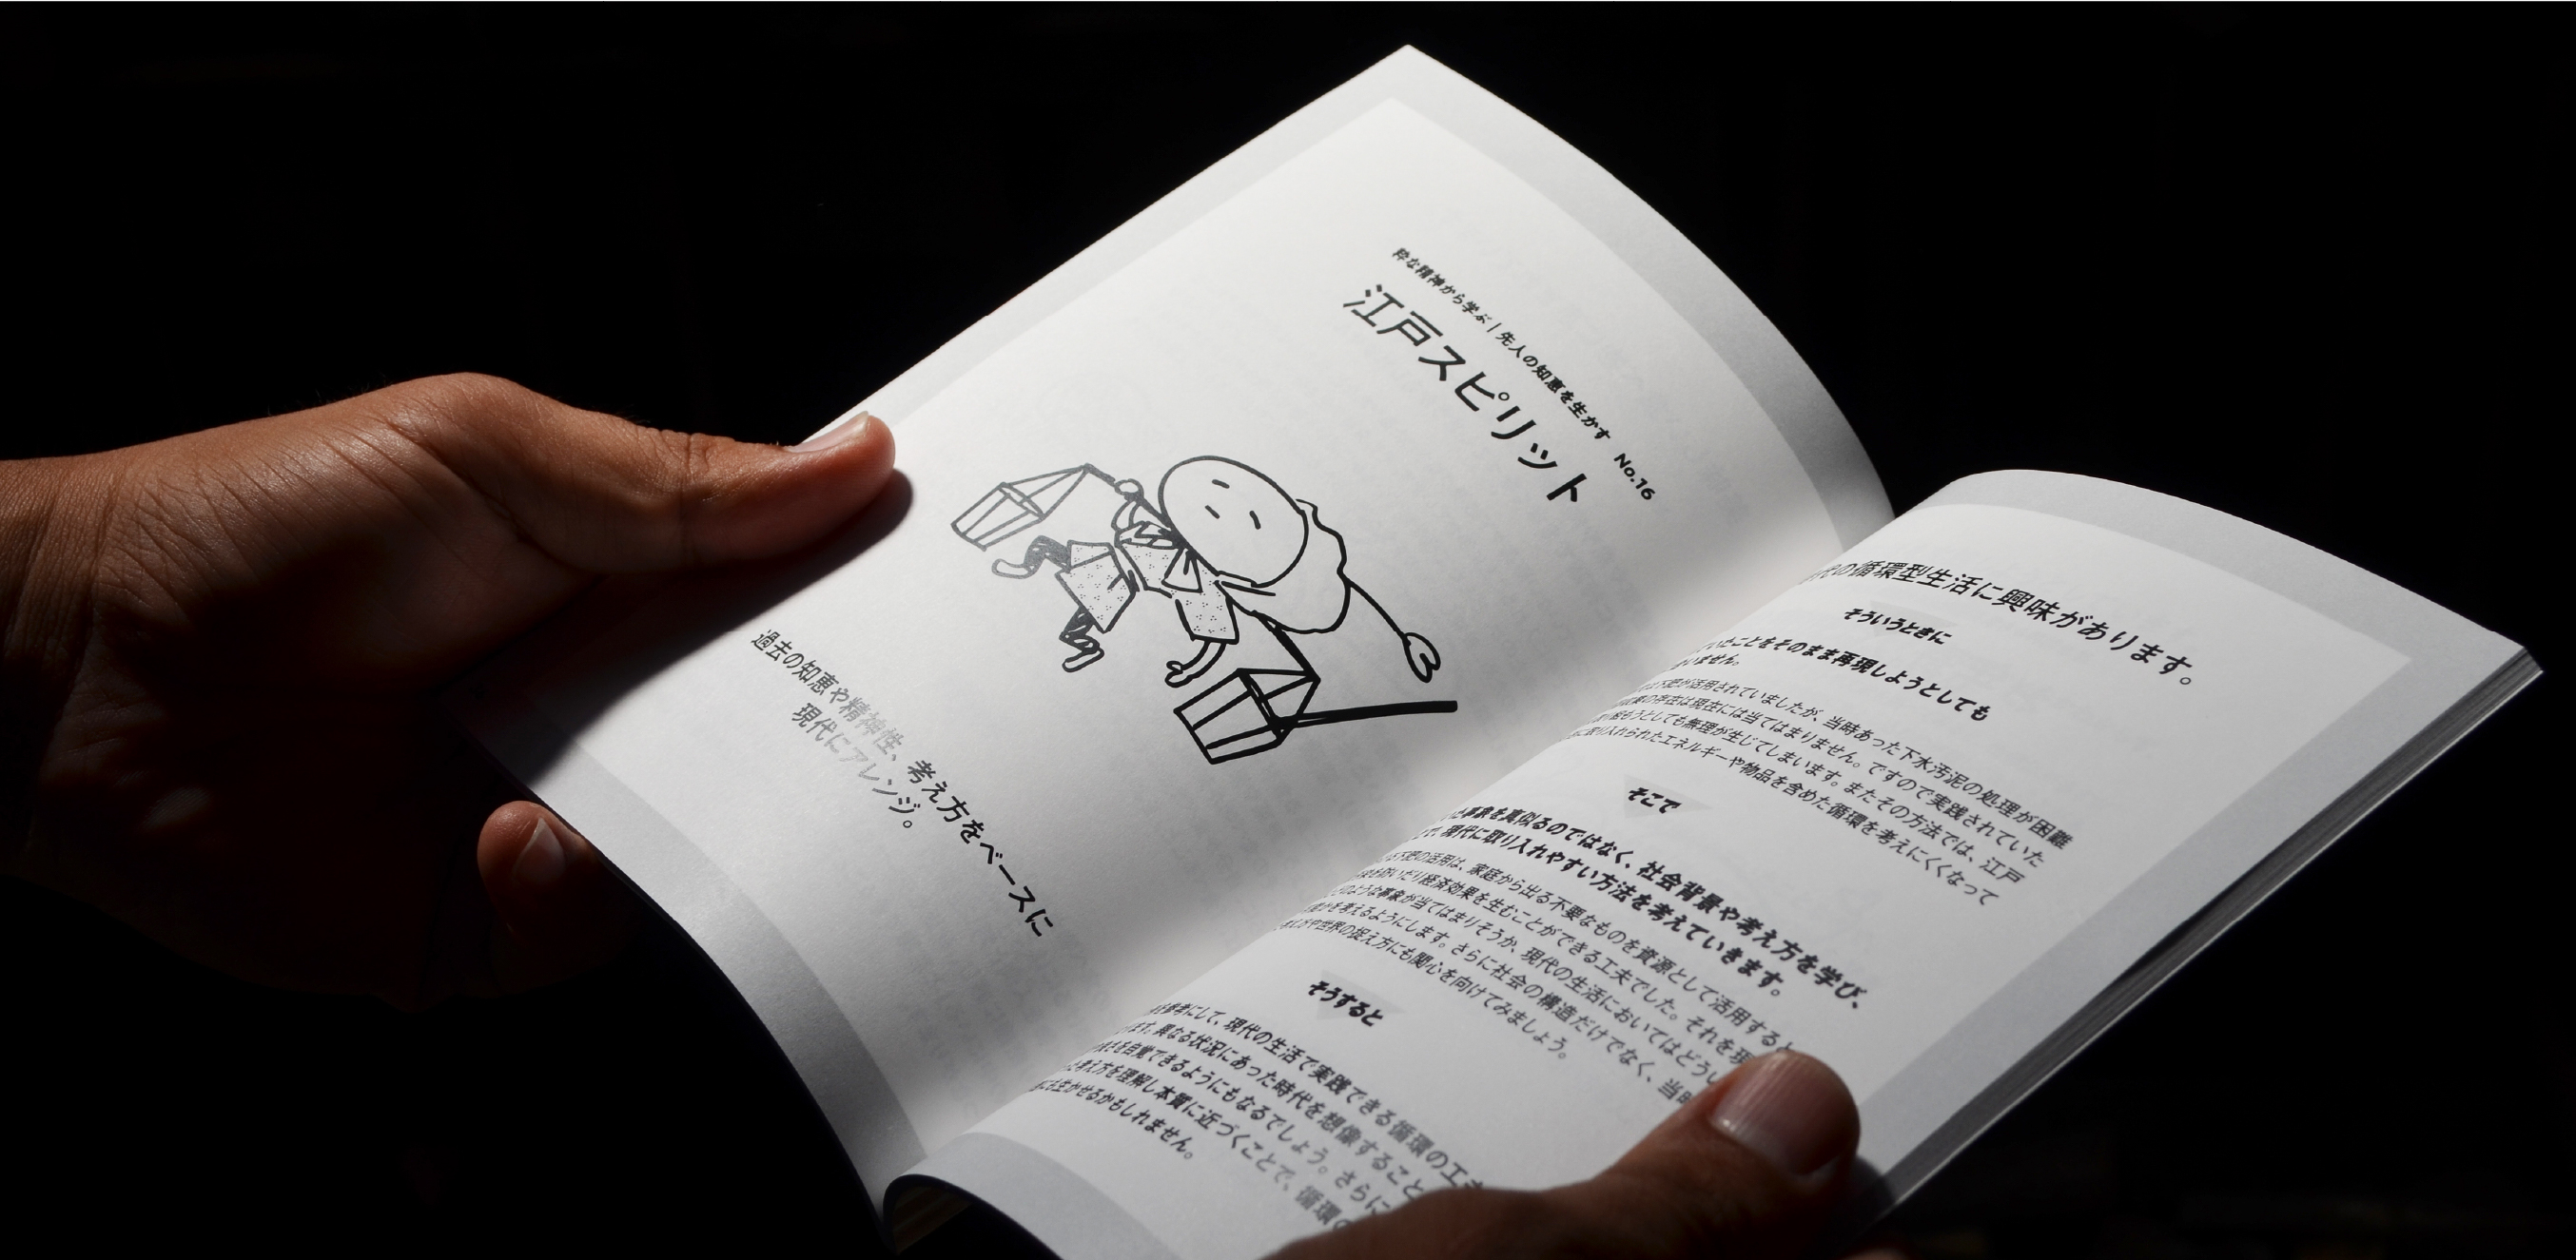 粋な精神から学ぶ|先人の知恵を生かす No.16
江戸スピリット
過去の知恵や精神性、考え方をベースに
現代にアレンジ。
の循環型生活に興味があります。
そういうときに
いたことをそのまま再現しようとしても
いません。
下肥が活用されていましたが、当時あった下水汚泥の処理が困難
の存在は現在には当てはまりません。ですので実践されていた
もうとしても無理が生じてしまいます。またその方法では、江戸
に取り入れられたエネルギーや物品を含めた循環を考えにくくなって
そこで
事象を真似るのではなく、社会背景や考え方を学び、
で、現代に取り入れやすい方法を考えていきます。
下肥の活用は、家庭から出る不要なものを資源として活用すると
を防いだり経済効果を生むことができる工夫でした。それを現
のような事象が当てはまりそうか、現代の生活においてはどうし
かを考えるようにします。さらに社会の構造だけでなく、当時
や世界の捉え方にも関心を向けてみましょう。
そうすると
を参考にして、現代の生活で実践できる循環の工
ます。異なる状況にあった時代を想像すること
さを自覚できるようにもなるでしょう。さらに
考え方を理解し本質に近づくことで、循環の
にも生かせるかもしれません。